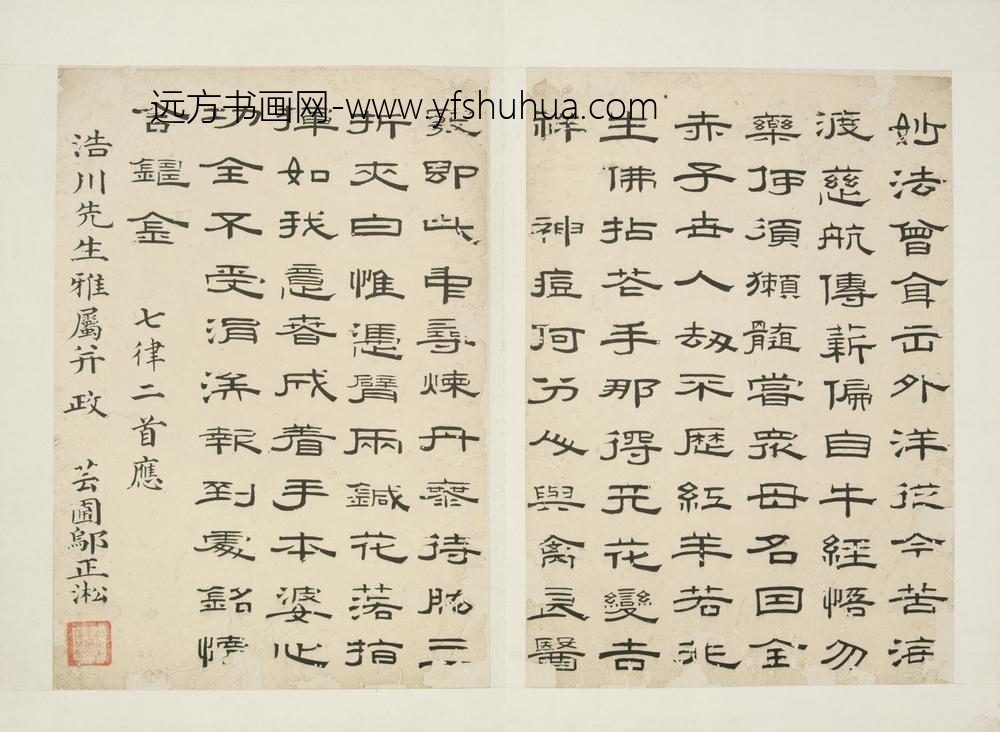 妙法曾外洋從今苦海
渡慈航傳薪偏自牛經悟勿
藥何須獺髓嘗衆母名因全
赤子世人劫不歷紅羊若非
生佛拈花手那得天花變吉
祥　神痘何分人與禽良醫
效即此中尋煉丹待肱三
折夾臼惟憑臂兩鍼花落指
揮如我意春成着手本婆心
功全不受涓報到處銘情
金　七律二首應
浩川先生雅屬并政　芸圃鄔正淞
远方书画网-www.yfshuhua.com